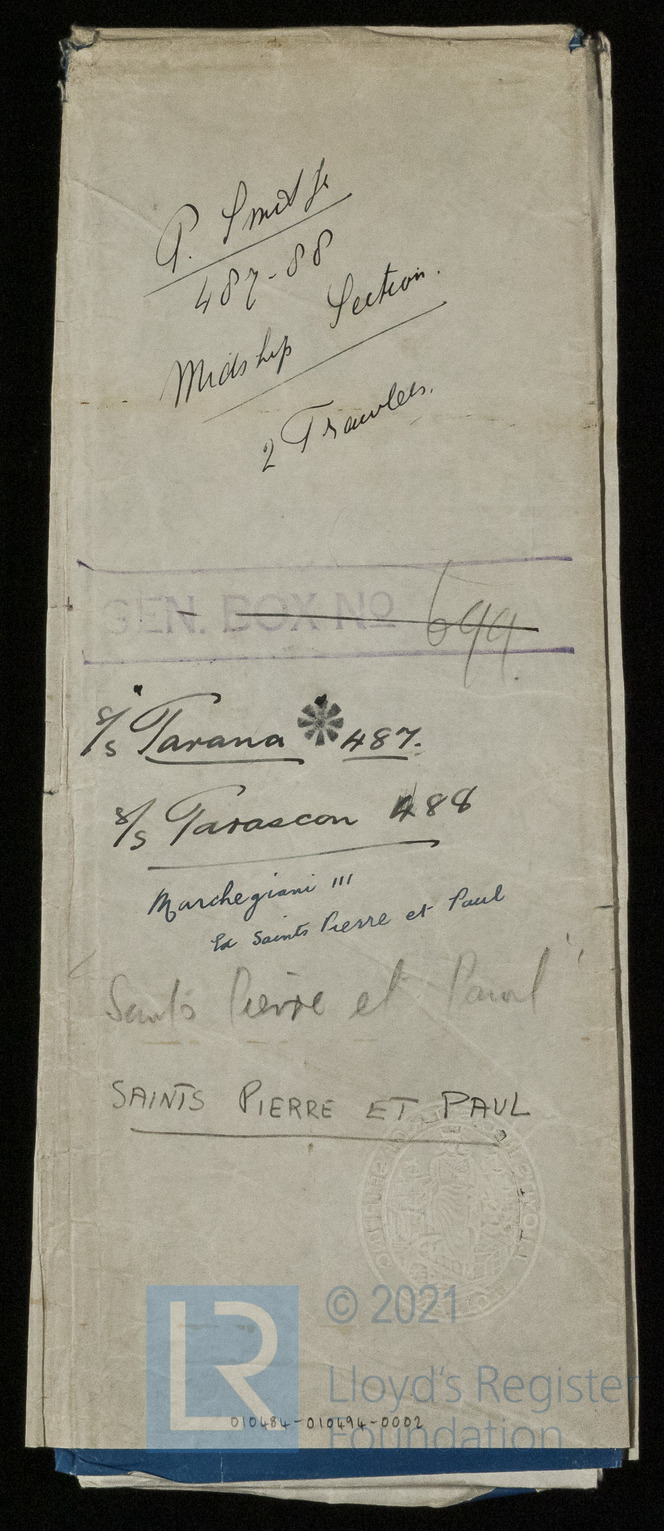 P. Smit Jr
487-88
Midship Section.
2 Trawlers.
GEN. BOX No 699.
S/S "Tarana 487.
S/S Tarascon 488
Marchegiani III
Ex Saints Pierre et Paul
"Saints Pierre et Paul"
SAINTS PIERRE ET PAUL
LR
© 2021
Lloyd's Register
Foundation
010484-010494-0002